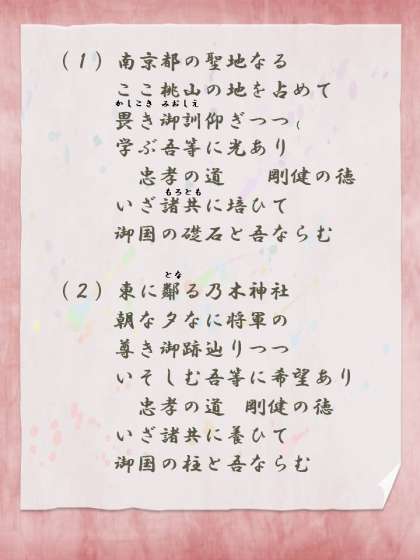 （1）南京都の聖地なる
ここ桃山の地を占めて
かしこき みおしえ
畏き御訓仰ぎつつ（
学ぶ吾等に光あり
忠孝の道　　剛健の徳
もろとも
いざ諸共に培ひて
御国の礎石と吾ならむ
とな
（2）東に鄰る乃木神社
朝な夕なに将軍の
尊き御跡辿りつつ
いそしむ吾等に希望あり
忠孝の道　剛健の徳
いざ諸共に養ひて
御国の柱と吾ならむ